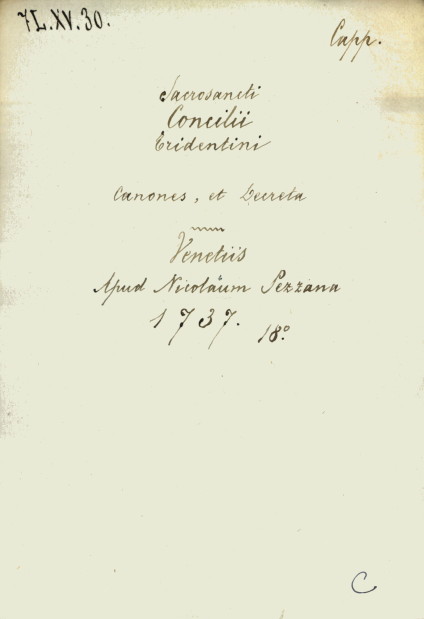 7L.XV.30.
Capp.
Sacrosancti
Concilii
Tridentini
Canones, et Decreta
Venetiis
Apud Nicoläum Pezzana
1737. 18º
C